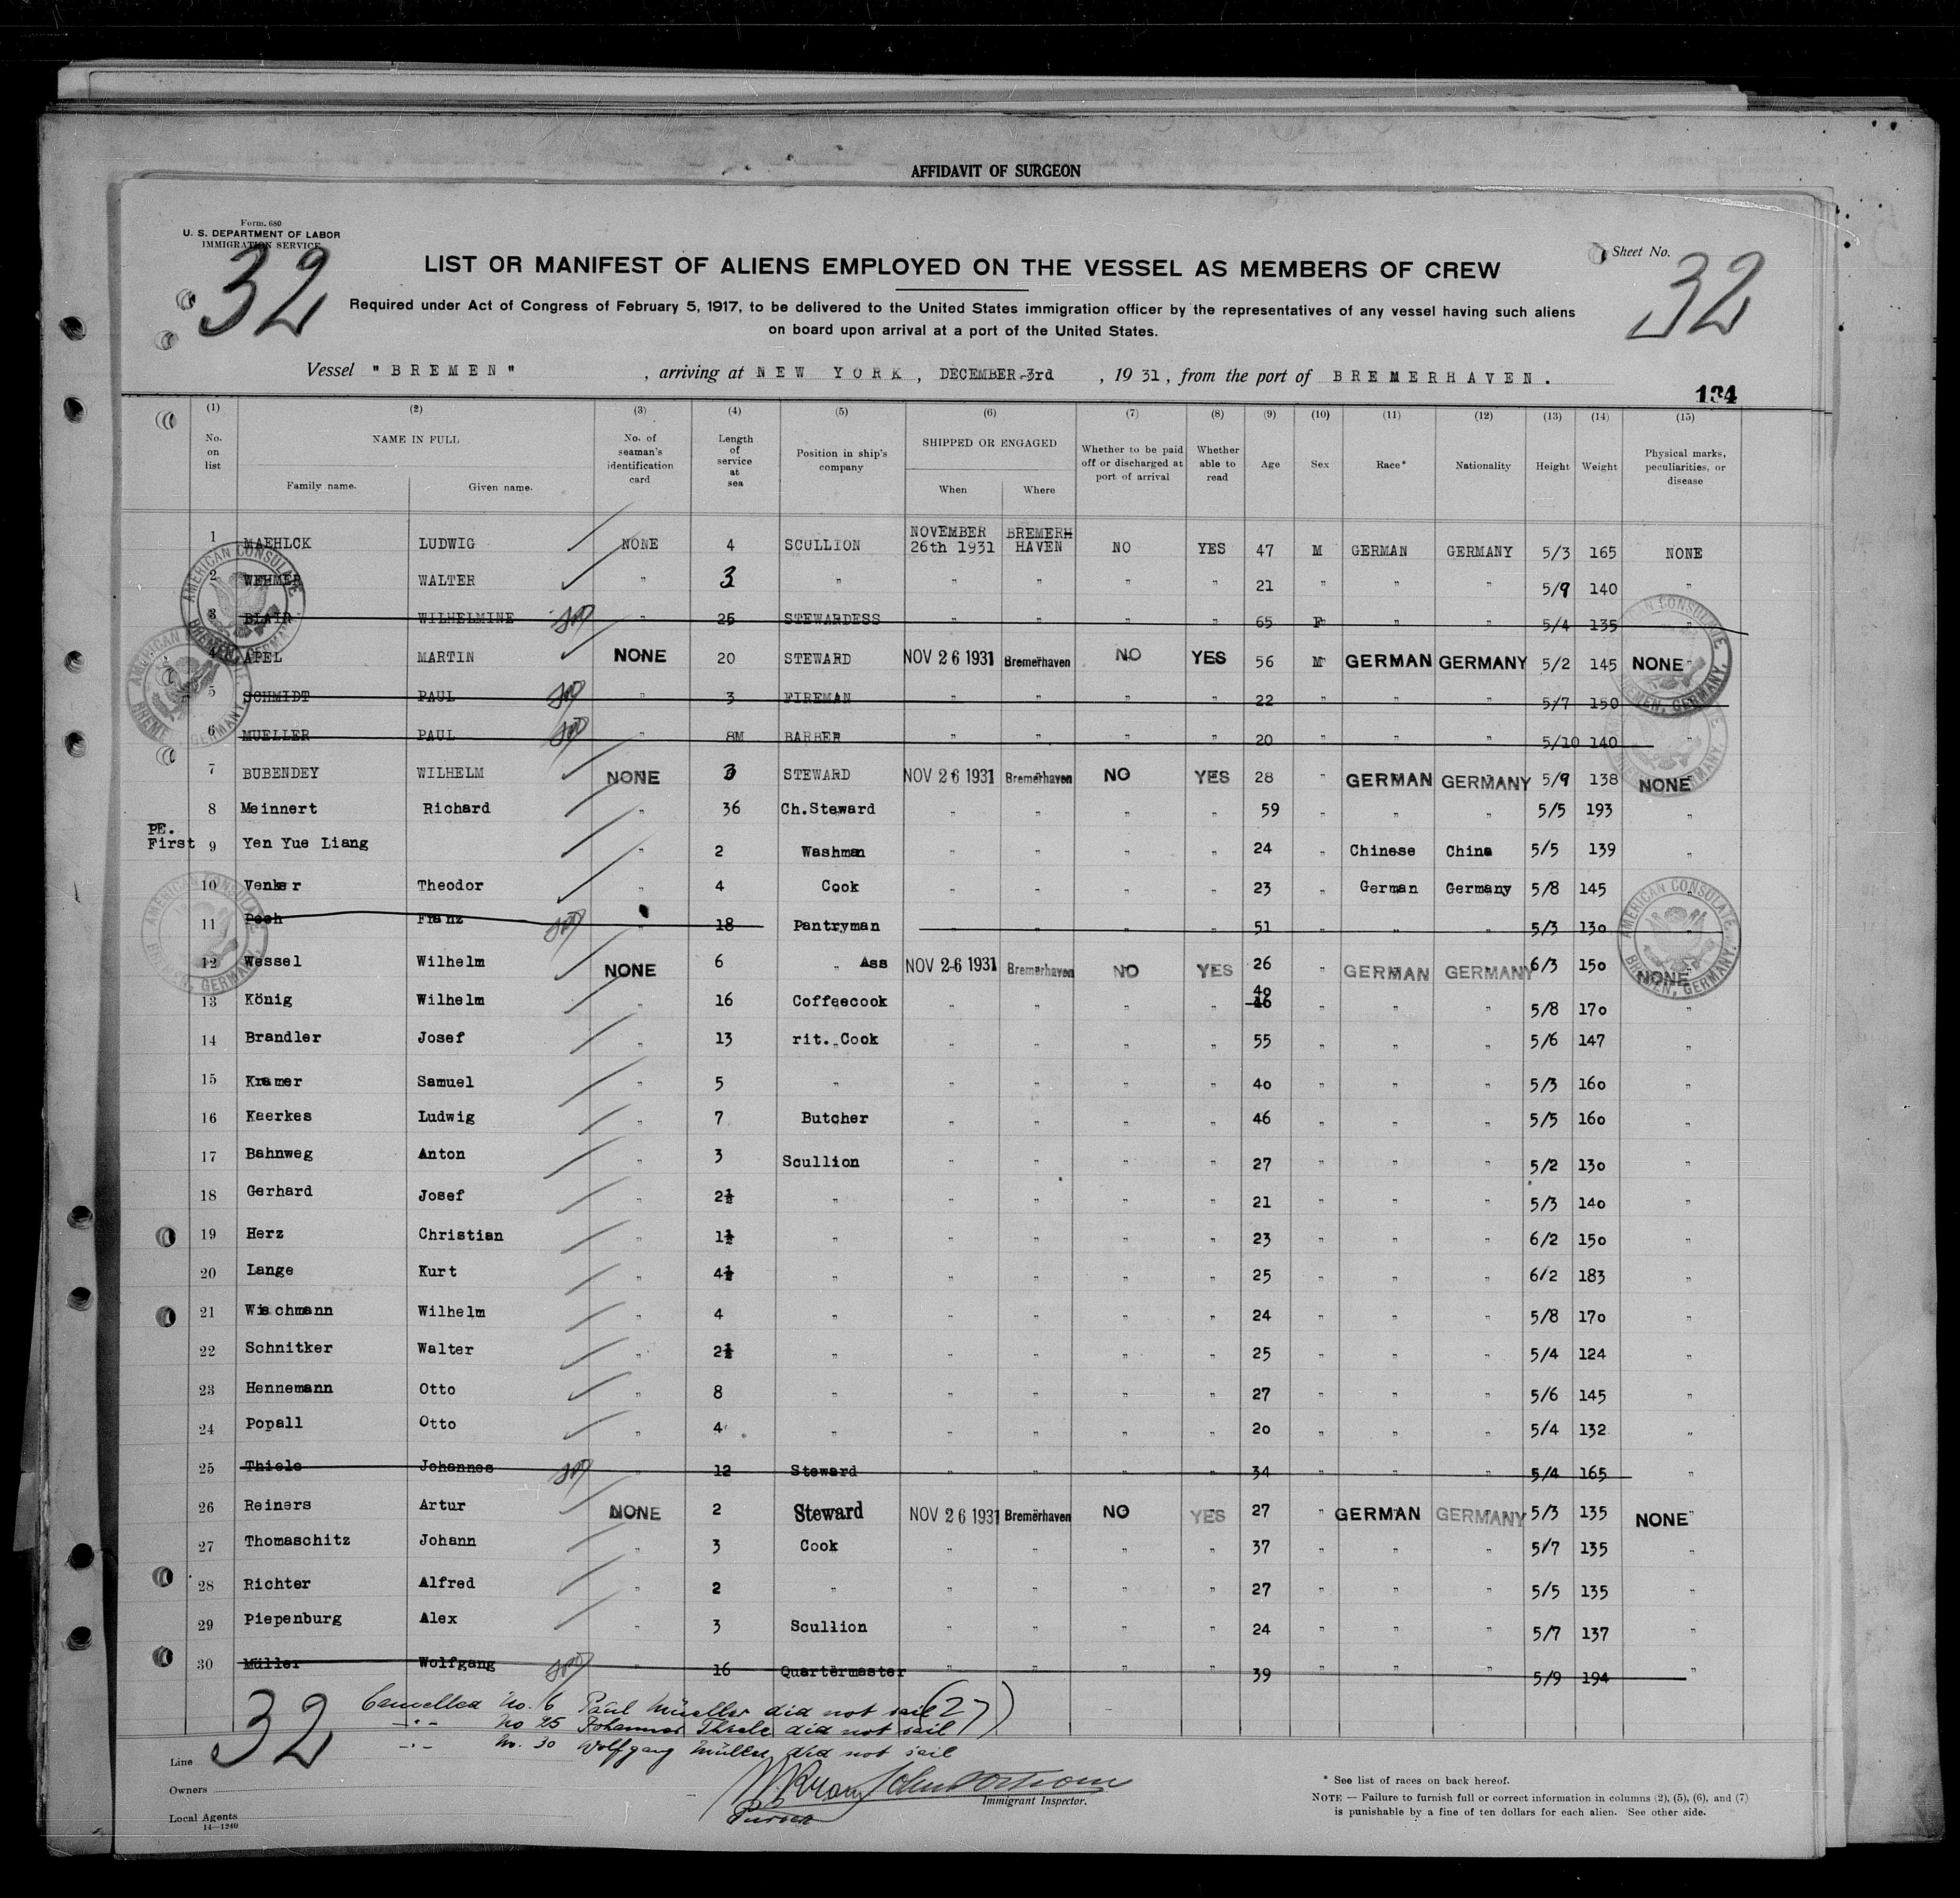 AFFIDAVIT OF SURGEON
Form. 680
U. S. DEPARTMENT OF LABOR
IMMIGRATION SERVICE
32
Sheet No.
32
LIST OR MANIFEST OF ALIENS EMPLOYED ON THE VESSEL AS MEMBERS OF CREW
Required under Act of Congress of February 5, 1917, to be delivered to the United States immigration officer by the representatives of any vessel having such aliens
on board upon arrival at a port of the United States.
Vessel "BREMEN", arriving at NEW YORK, DECEMBER 3rd, 1931, from the port of BREMERHAVEN.
134
(1) (2) (3) (4) (5) (6) (7) (8) (9) (10) (11) (12) (13) (14) (15)
No. on list NAME IN FULL Family name. Given name. No. of seaman's identification card Length of service at sea Position in ship's company SHIPPED OR ENGAGED When Where Whether to be paid off or discharged at port of arrival Whether able to read Age Sex Race* Nationality Height Weight Physical marks, peculiarities, or disease
1 MAEHLCK LUDWIG NONE 4 SCULLION NOVEMBER 26th 1931 BREMERHHAVEN NO YES 47 M GERMAN GERMANY 5/3 165 NONE
2 WEHMER WALTER " 3 " " " " " 21 " " " 5/9 140 "
3 BLAIR WILHELMINE " 25 STEWARDESS " " " " 65 F " " 5/4 135 "
4 APEL MARTIN NONE 20 STEWARD NOV 26 1931 Bremerhaven NO YES 56 M GERMAN GERMANY 5/2 145 NONE
5 SCHMIDT PAUL " 3 FIREMAN " " " " 22 " " " 5/7 150 "
6 MUELLER PAUL " 8M BARBER " " " " 20 " " " 5/10 140 "
7 BUBENDEY WILHELM NONE 3 STEWARD NOV 26 1931 Bremerhaven NO YES 28 " GERMAN GERMANY 5/9 138 NONE
8 Meinnert Richard " 36 Ch.Steward " " " " 59 " " " 5/5 193 "
PE.
First 9 Yen Yue Liang " 2 Washman " " " " 24 " Chinese China 5/5 139 "
10 Venker Theodor " 4 Cook " " " " 23 " German Germany 5/8 145 "
11 Pech Franz " 18 Pantryman " " " " 51 " " " 5/3 130 "
12 Wessel Wilhelm NONE 6 " Ass NOV 26 1931 Bremerhaven NO YES 26 " GERMAN GERMANY 6/3 150 NONE
13 König Wilhelm " 16 Coffeecook " " " " 40 46 " " " 5/8 170 "
14 Brandler Josef " 13 rit. Cook " " " " 55 " " " 5/6 147 "
15 Kramer Samuel " 5 " " " " " 40 " " " 5/3 160 "
16 Kaerkes Ludwig " 7 Butcher " " " " 46 " " " 5/5 160 "
17 Bahnweg Anton " 3 Scullion " " " " 27 " " " 5/2 130 "
18 Gerhard Josef " 2½ " " " " " 21 " " " 5/3 140 "
19 Herz Christian " 1½ " " " " " 23 " " " 6/2 150 "
20 Lange Kurt " 4½ " " " " " 25 " " " 6/2 183 "
21 Wiechmann Wilhelm " 4 " " " " " 24 " " " 5/8 170 "
22 Schnitker Walter " 2½ " " " " " 25 " " " 5/4 124 "
23 Hennemann Otto " 8 " " " " " 27 " " " 5/6 145 "
24 Popall Otto " 4 " " " " " 20 " " " 5/4 132 "
25 Thiele Johannes " 12 Steward " " " " 34 " " " 5/4 165 "
26 Reiners Artur NONE 2 Steward NOV 26 1931 Bremerhaven NO YES 27 " GERMAN GERMANY 5/3 135 NONE
27 Thomaschitz Johann " 3 Cook " " " " 37 " " " 5/7 135 "
28 Richter Alfred " 2 " " " " " 27 " " " 5/5 135 "
29 Piepenburg Alex " 3 Scullion " " " " 24 " " " 5/7 137 "
30 Müller Wolfgang " 16 Quartermaster " " " " 39 " " " 5/9 194 "
AMERICAN CONSULATE BREMEN, GERMANY.
AMERICAN CONSULATE BREMEN, GERMANY.
AMERICAN CONSULATE BREMEN, GERMANY.
AMERICAN CONSULATE, BREMEN, GERMANY.
AMERICAN CONSULATE, BREMEN, GERMANY.
32
Cancelled No. 6 Paul Mueller did not sail (27)
-"- No 25 Johannes Thiele did not sail
-"- No. 30 Wolfgang Müller did not sail
Line
Owners
Local Agents
14—1240
Purser
Immigrant Inspector.
* See list of races on back hereof.
NOTE — Failure to furnish full or correct information in columns (2), (5), (6), and (7)
is punishable by a fine of ten dollars for each alien. See other side.